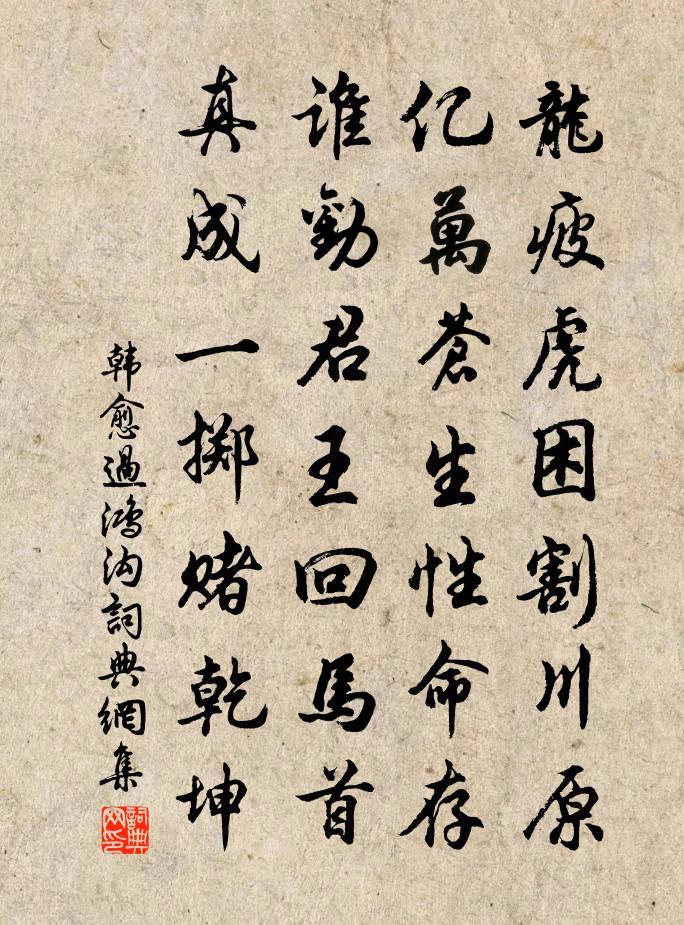 龍疲虎困割川原
亿萬蒼生性命存
誰勸君王回馬首
真成一掷赌乾坤
韩愈過鴻沟詞典網集
詞典网印